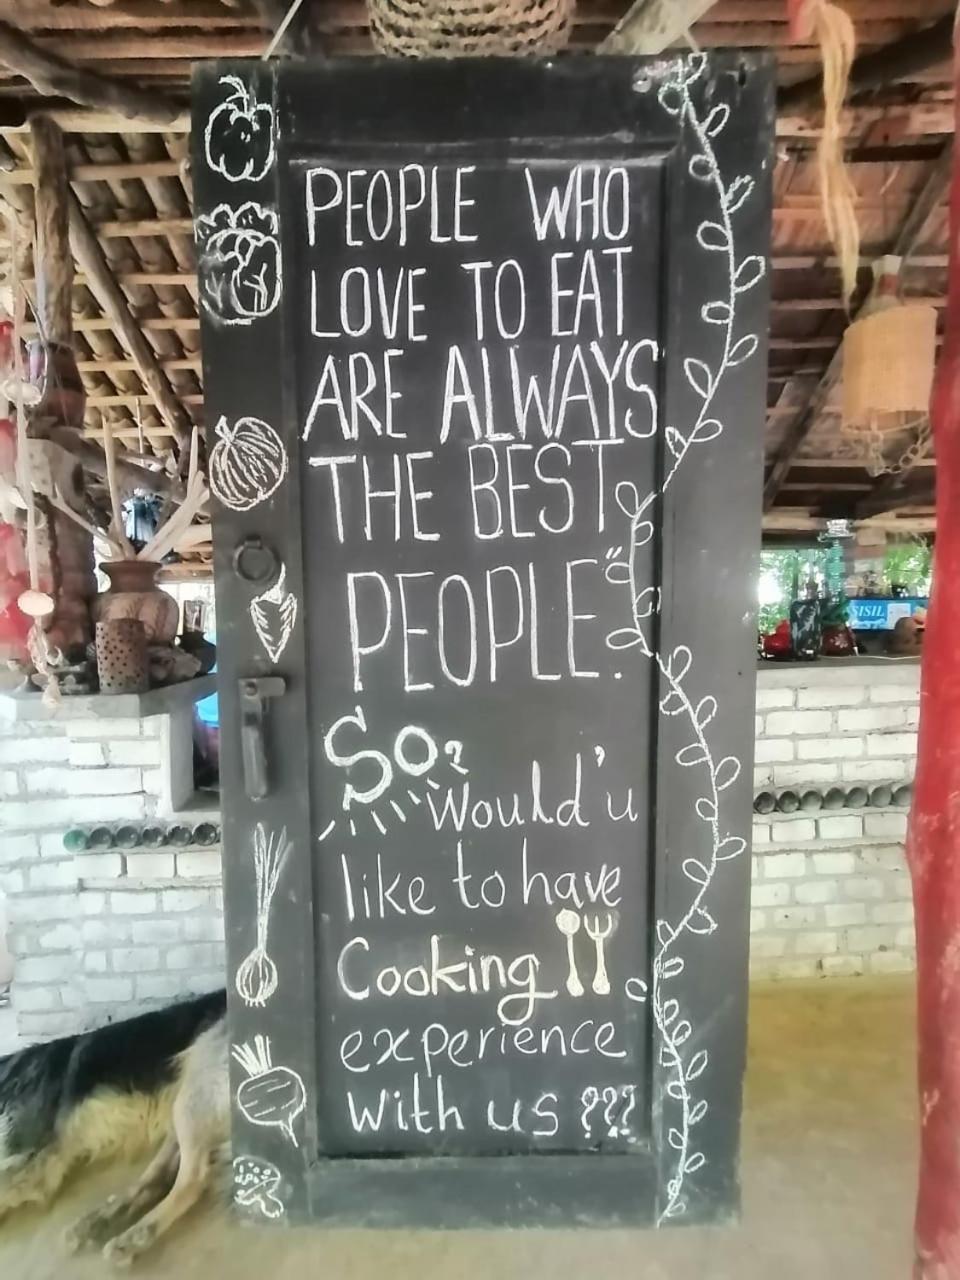 PEOPLE WHO
LOVE TO EAT
ARE ALWAYS
THE BEST
PEOPLE."
So?
Would'u
like to have
Cooking
experience
with us ???
SISIL